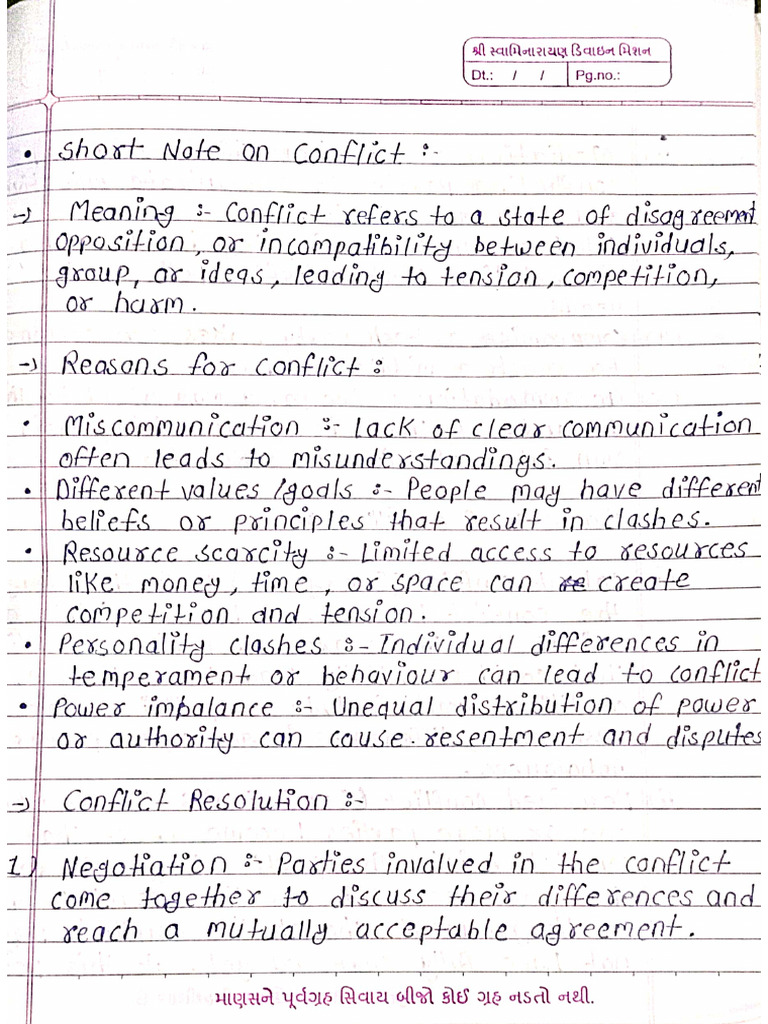 શ્રી સ્વામિનારાયણ ડિવાઇન મિશન
Dt.: / / Pg.no.:
• Short Note on Conflict :-
→ Meaning :- Conflict refers to a state of disagreement
opposition, or incompatibility between individuals,
group, or ideas, leading to tension, competition,
or harm.
→ Reasons for conflict :
• Miscommunication :- Lack of clear communication
often leads to misunderstandings.
• Different values /goals :- People may have different
beliefs or principles that result in clashes.
• Resource scarcity :- Limited access to resources
like money, time, or space can create
competition and tension.
• Personality clashes :- Individual differences in
temperament or behaviour can lead to conflict
• Power imbalance :- Unequal distribution of power
or authority can cause resentment and disputes
→ Conflict Resolution :-
1) Negotiation :- Parties involved in the conflict
come together to discuss their differences and
reach a mutually acceptable agreement.
માણસને પૂર્વગ્રહ સિવાય બીજો કોઈ ગ્રહ નડતો નથી.